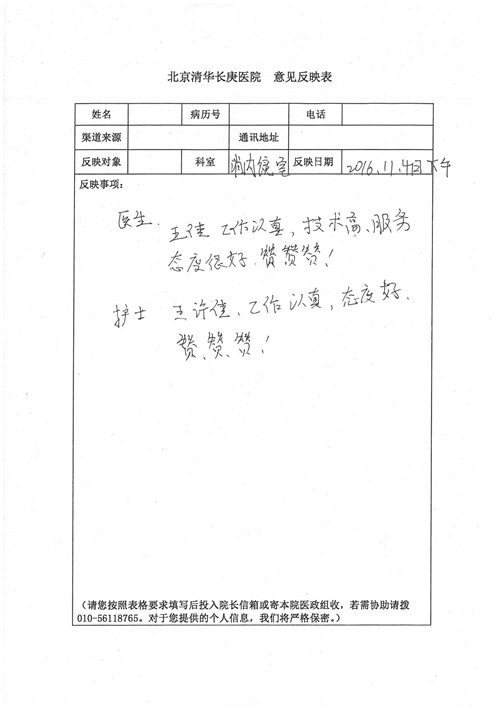 北京清华长庚医院 意见反映表
姓名 病历号 电话
渠道来源 通讯地址
反映对象 科室 消内镜室 反映日期 2016.11.4日下午
反映事项：
医生. 王佳 工作认真，技术高、服务
态度很好.赞赞赞！
护士 王许佳、工作认真，态度好.
赞、赞、赞！
（请您按照表格要求填写后投入院长信箱或寄本院医政组收，若需协助请拨
010-56118765。对于您提供的个人信息，我们将严格保密。）